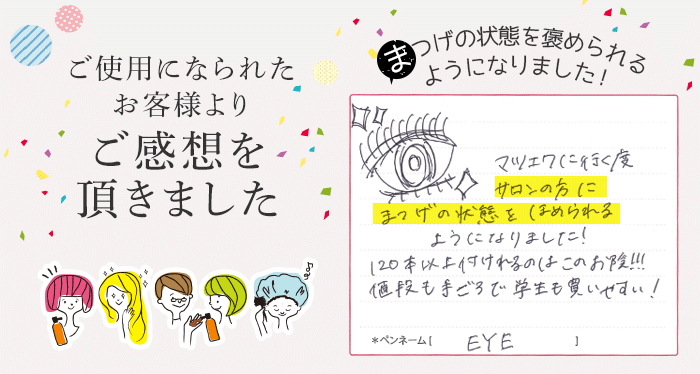 ご使用になられた
お客様より
ご感想を
頂きました
まつげの状態を褒められる
ようになりました！
マツエクに行く度
サロンの方に
まつげの状態をほめられる
ようになりました!
120本以上付けれるのはこのお陰!!!
値段も手ごろで学生も買いやすい!
*ペンネーム[ EYE ]